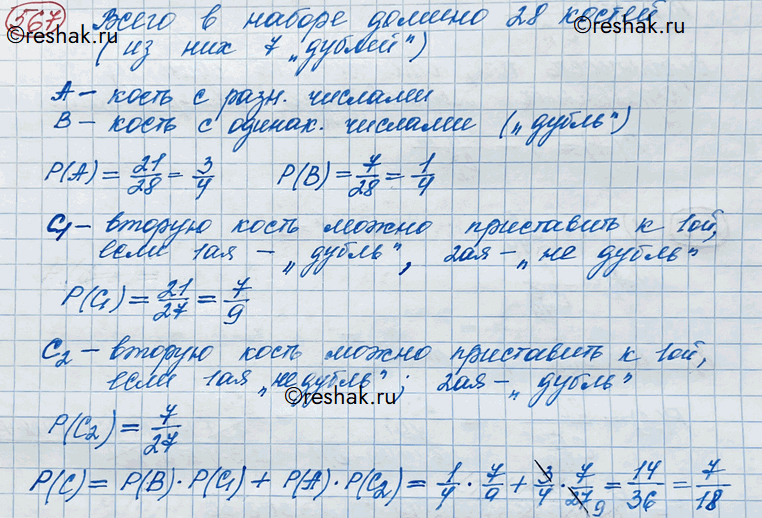 567 Всего в наборе домино 28 костей
©reshak.ru
(из них 7 „дублей") ©reshak.ru
A – кость с разн. числами
B – кость с одинак. числами („дубль")
P(A) = 21/28 = 3/4 P(B) = 7/28 = 1/4
C₁ – вторую кость можно приставить к 1ой,
если 1ая – „дубль", 2ая – „не дубль"
P(C₁) = 21/27 = 7/9
C₂ – вторую кость можно приставить к 1ой,
если 1ая „не дубль"; 2ая – „дубль"
©reshak.ru
P(C₂) = 7/27
P(C) = P(B) · P(C₁) + P(A) · P(C₂) = 1/4 · 7/9 + 3/4 · 7/27 9 = 14/36 = 7/18